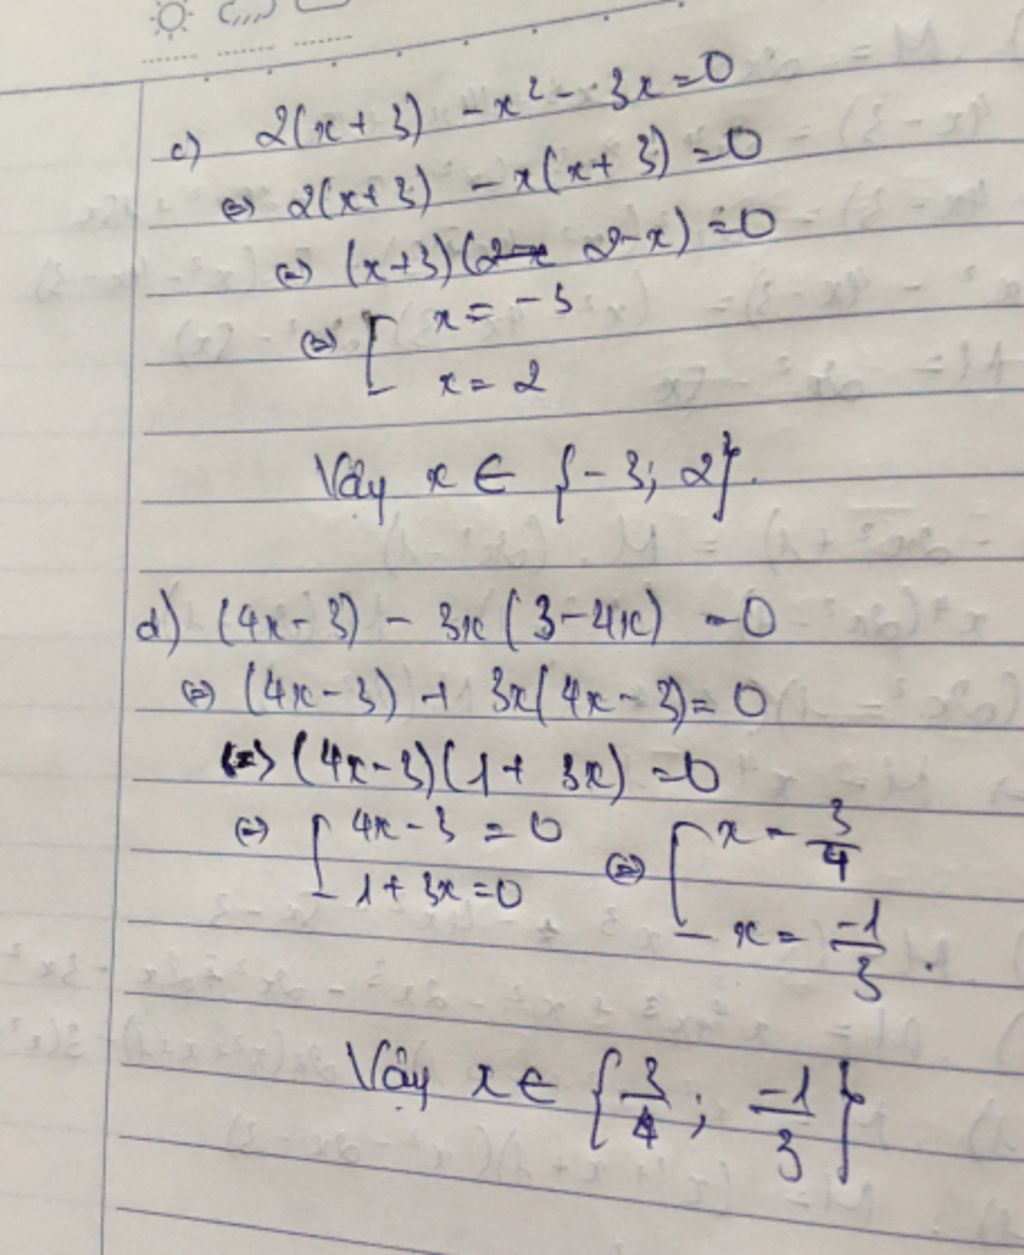 c) 2(x + 3) - x² - 3x = 0
⇔ 2(x+3) - x(x+3) = 0
⇔ (x+3)(2-x 2-x) = 0
⇔ [ x = -3
x = 2
Vậy x ∈ {-3; 2}.
d) (4x - 3) - 3x(3-4x) = 0
⇔ (4x-3) + 3x(4x-3) = 0
⇔ (4x-3)(1+3x) = 0
⇔ [ 4x - 3 = 0 ⇔ [ x = 3/4
1 + 3x = 0 x = -1/3.
Vậy x ∈ {3/4; -1/3}